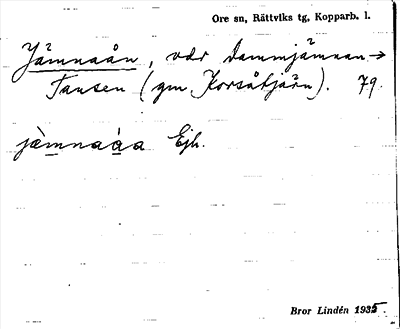 Ore sn, Rättviks tg, Kopparb. l.
Jämnaån, vdr Dammjämnan →
Tansen (gm Korsåtjärn). 79.
jàmnaàa Ejh.
Bror Lindén 1935.